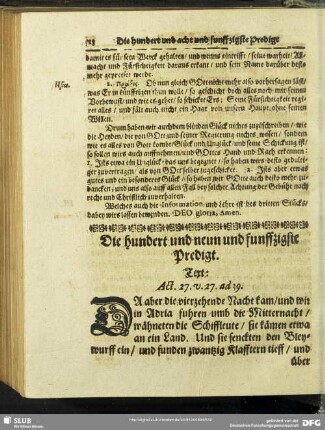 Die hundert und acht und funffzigste Predigt
damit es für sein Werck gehalten / und wenns eintrifft / seine warheit / All-
macht und Fürsichtigkeit daraus erkant / und sein Name darüber desto
mehr gepreiset werde.
Usus.
2. Ob nun gleich GOtt nicht mehr also vorhersagen läst /
was Er in künfftigen thun wolle / so geschicht doch alles noch mit seinem
Vorbewust / und wie es gehet / so schicket Ers ; Seine Fürsichtigkeit regie-
ret alles / und fält auch nicht ein Haar von unserm Haupt, ohne seinen
Willen.
Drum haben wir auch dem blinden Glück nichts zuzuschreiben / wie
die Heyden / die von GOtt und seiner Regierung nichts wissen / sondern
wie es alles von Gott kombt Glück und Unglück / und seine Schickung ist /
so sollen wirs auch auffnehmen und GOttes Hand und Rath erkennen :
1. Ists etwa ein Unglück / das uns begegnet / so haben wirs desto gedulti-
ger zuvertragen / als von GOtt selber zugeschicket. 2. Ists aber etwas
gutes und ein besonderes Glück / so haben wir GOtte auch desto mehr zudan-
cken / und uns also auff allen Fall bey solcher Achtung der Gebühr nach
recht und Christlich zuverhalten.
Welches auch die Information und Lehre ist des dritten Stücks /
dabey wirs lassen bewenden. DEO gloria, Amen.
Die hundert und neun und funffzigste
Predigt.
Text:
Act. 27. v. 27. ad 29.
DA aber die vierzehende Nacht kam / und wir
in Adria fuhren umb die Mitternacht /
wähneten die Schiffleute / sie kämen etwa
an ein Land. Und sie senckten den Bley-
wurff ein / und funden zwantzig Klafftern tieff / und
über
SLUB
Wir führen Wissen.
gefördert von der
Deutschen Forschungsgemeinschaft
DFG